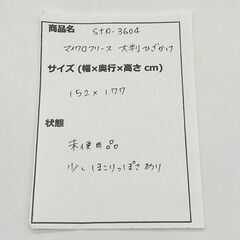 商品名
STP-3604
マイクロフリース 大判ひざかけ
サイズ (幅×奥行×高さ cm)
152×177
状態
未使用品
少しほこりっぽさあり